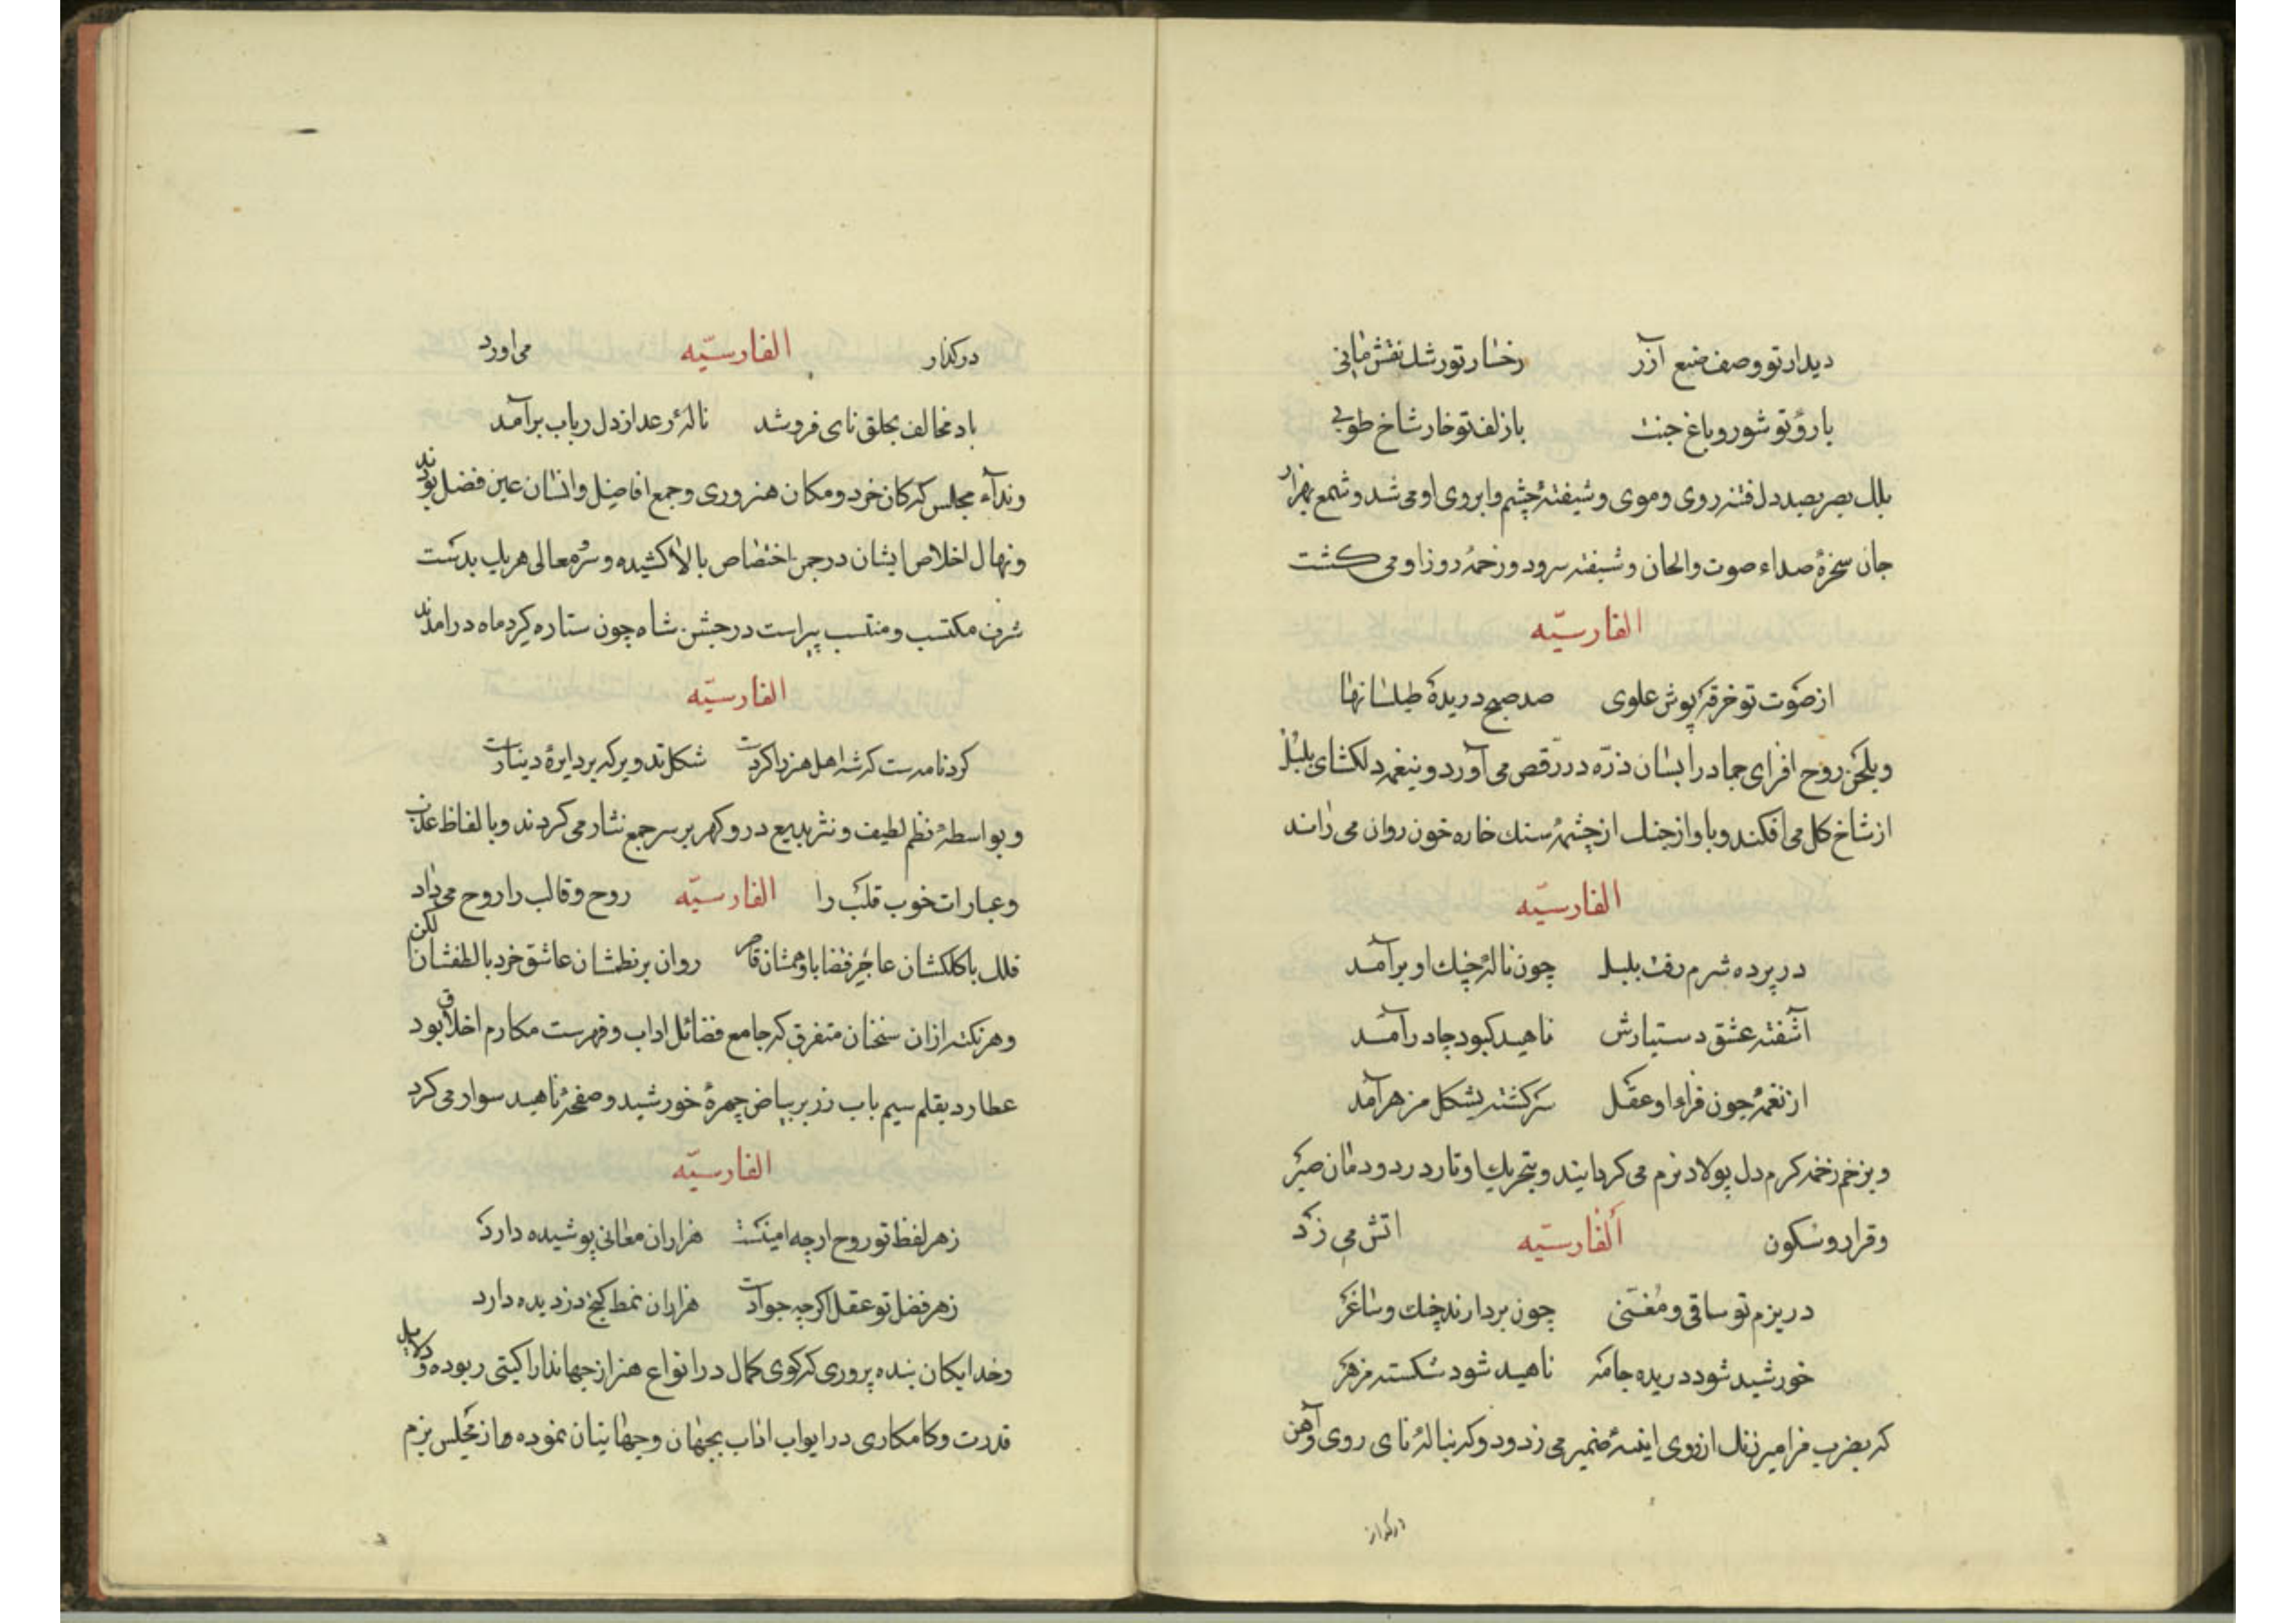 دیدار تو وصف صنع آزر رخسار تو رشک نقش مانی
با روی تو شور و باغ جنت با زلف تو خار شاخ طوبی
بیک بصر بصد دل فتنه روی و موی و شیفتهٔ چشم و ابروی او می شد و شمع بهزار
جان سخرهٔ صداء صوت و الحان و شیفته سرود و زخمهٔ روزا و می کشت
الفارسیّه
از صوت تو خرقه پوش علوی صد صبح دریدهٔ طیلسانها
و بلحن روح افزای جماد را بسان ذرّه در رقص می آورد و بنغمه دلکشای بلبل
از شاخ کل می افکند و باواز جنک از چشمهٔ سنک خاره خون روان می راند
الفارسیّه
در پرده شرم رفت بلبل چون نالهٔ چنک او برآمد
آشفته عشق دستیارش ناهید کبود چادر آمد
از نغمهٔ جون او عقل سرکشته بشکل مزهر آمد
و بزخم زخمه کرم دل پولاد نرم می کردانیند و بتحریک اوتار در دودمان صبر
و قرار و سکون الفارسیّه اتش می زد
در بزم تو ساقی و مغنّی چون بردارند چنک و ساغر
خورشید شود دریده جامه ناهید شود شکسته مزهر
که بضرب مزامیر زنک از روی اینهٔ ضمیر می زدود و که بنالهٔ نای روی و آهن
درکداز
درکداز الفارسیّه می اورد
باد مخالف بحلق نای فرو شد نالهٔ رعد از دل رباب برآمد
و ندآء مجلس که کان خرد و مکان هنروری و جمع افاضل و انسان عین فضل بودند
و نهال اخلاص ایشان در جمن اختصاص بالا کشیده و سرّ معالی هر یک بدست
شرف مکتسب و منتسب پیراست در جشن شاه چون ستاره کرد ماه درآمدند
الفارسیّه
کرد نامه ست که شه اهل هنر را کردست شکل تدویر که بر دایرهٔ دینارست
و بواسطهٔ نظم لطیف و نثر بدیع در و کهر بر سر جمع نثار می کردند و بالفاظ عذب
و عبارات خوب قلب را الفارسیّه روح و قالب را روح می داد
فلک با کلکشان عاجز فضا با وهمشان قاصر روان بر نظمشان عاشق خرد با لطفشان الکن
و هر نکته از ان سخنان متفرق که جامع فضائل اداب و فهرست مکارم اخلاق بود
عطارد بقلم سیم باب زر بر بیاض چهرهٔ خورشید و صفحهٔ ناهید سوار می کرد
الفارسیّه
زهر لفظ تو روح ارچه امینست هزاران معانی پوشیده دارد
زهر فضل تو عقل اکرچه جوادست هزاران نمط کنج دزدیده دارد
و خدایکان بنده پروری که کوی کمال در انواع هنر از جهاندارا کیتی ربوده و دلایل
قدرت و کامکاری در ابواب اداب بجهان و جهانینان نموده و از مجلس بزم